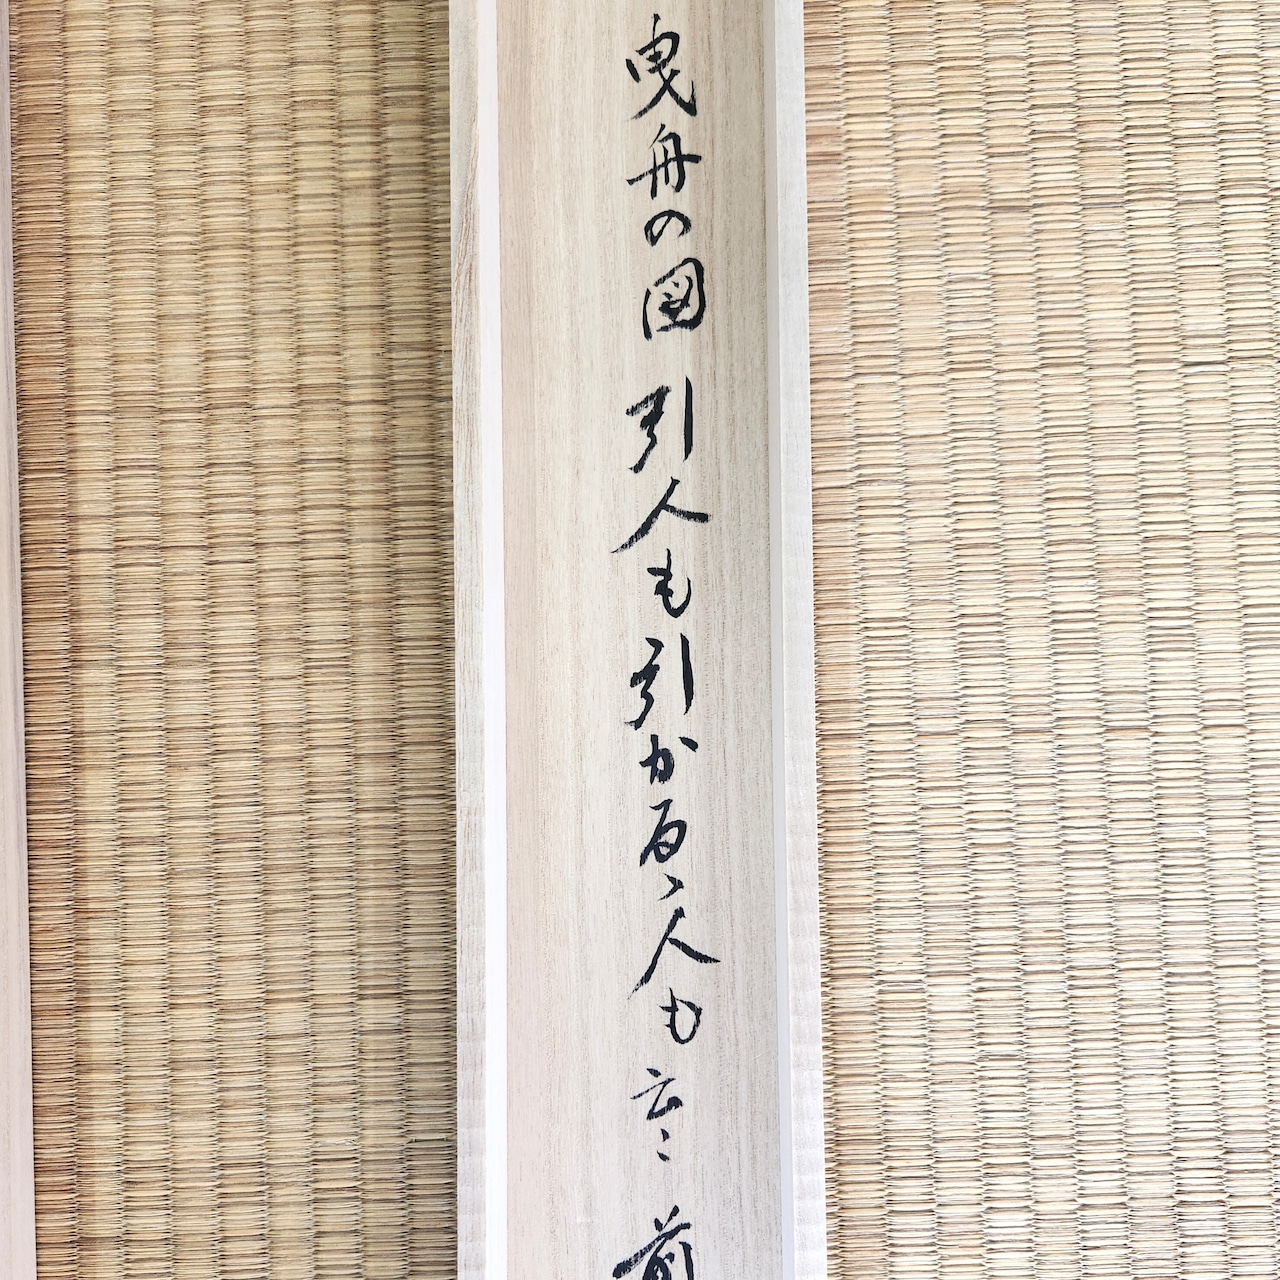 曳舟の図 引人も引かるゝ人も云々 前